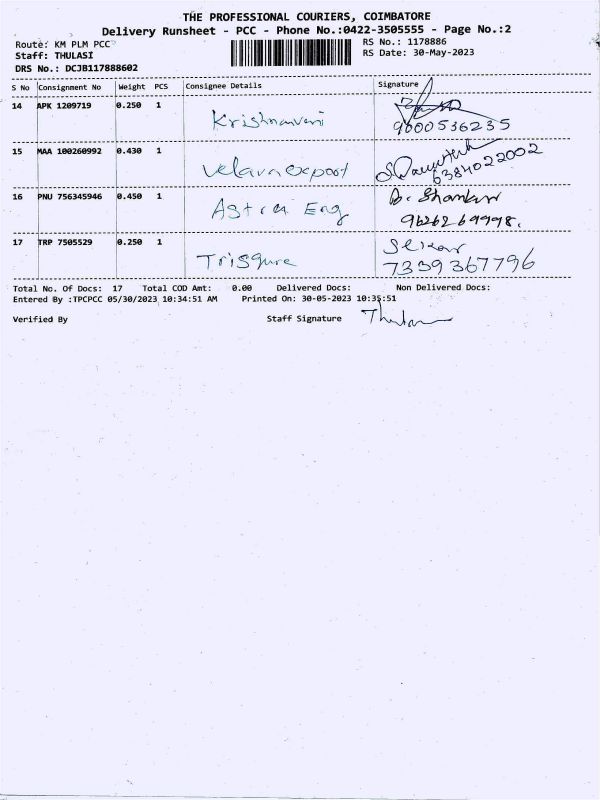 THE PROFESSIONAL COURIERS, COIMBATORE
Delivery Runsheet - PCC - Phone No.:0422-3505555 - Page No.:2
Route: KM PLM PCC
RS No.: 1178886
Staff: THULASI
RS Date: 30-May-2023
DRS No.: DCJB117888602
S No Consignment No Weight PCS Consignee Details Signature
14 APK 1209719 0.250 1 Krishnaveni
9000536235
15 MAA 100260992 0.430 1 Velavn export
6384022002
16 PNU 756345946 0.450 1 Astra Eng B. Shankar
9626269998.
17 TRP 7505529 0.250 1 Trisqure Sekar
7339367796
Total No. Of Docs: 17 Total COD Amt: 0.00 Delivered Docs: Non Delivered Docs:
Entered By :TPCPCC 05/30/2023 10:34:51 AM Printed On: 30-05-2023 10:35:51
Verified By Staff Signature